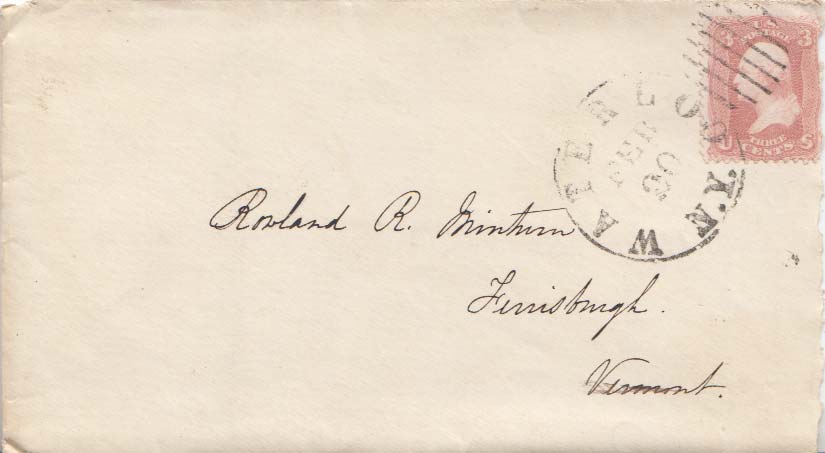 3 U.S. 3
POSTAGE
THREE
U CENTS S
WATERLOO N.Y.
FEB
Rowland R. Minturn
Ferrisburgh.
Vermont.